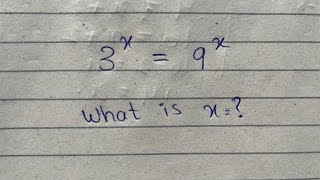 3ˣ = 9ˣ
What is x=?